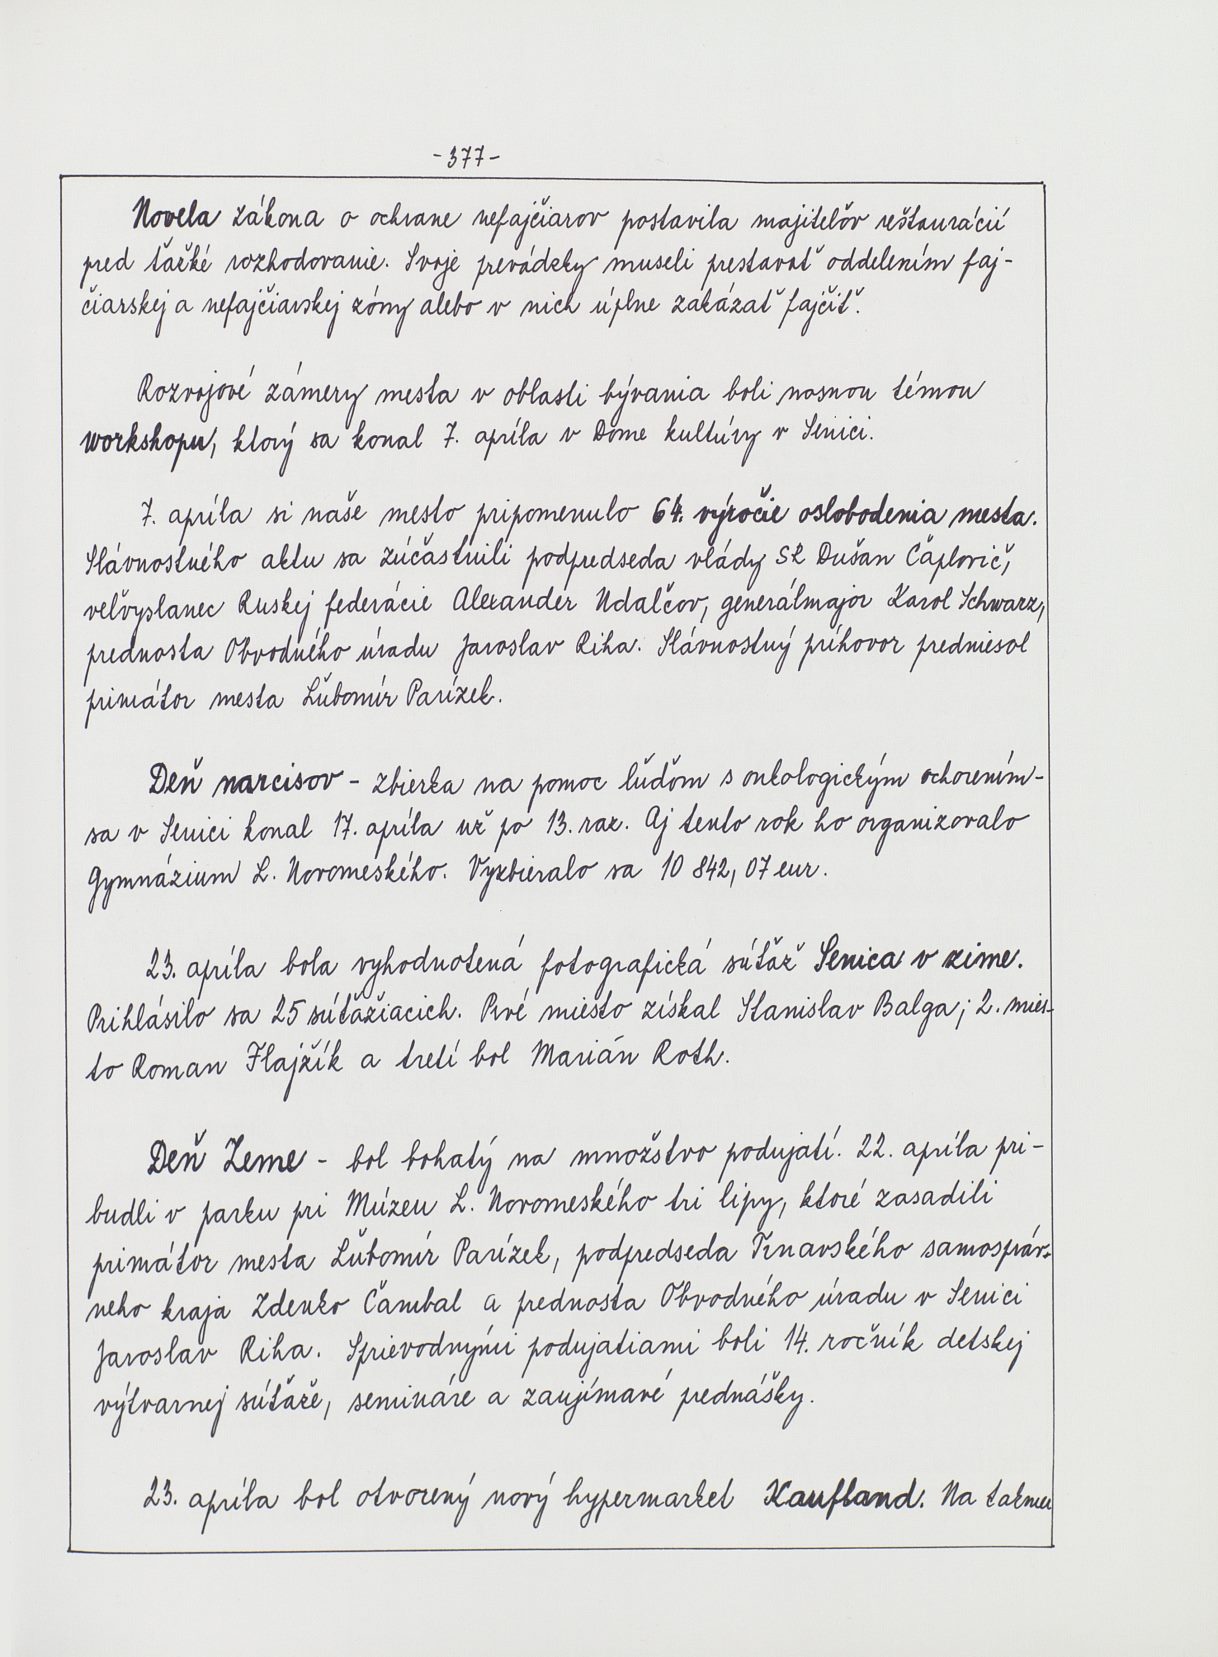 -377-
Novela zákona o ochrane nefajčiarov postavila majiteľov reštaurácií
pred ťažké rozhodovanie. Svoje prevádzky museli prestavať oddelením faj-
čiarskej a nefajčiarskej zóny alebo v nich úplne zakázať fajčiť.
Rozvojové zámery mesta v oblasti bývania boli nosnou témou
workshopu, ktorý sa konal 7. apríla v Dome kultúry v Senici.
7. apríla si naše mesto pripomenulo 64. výročie oslobodenia mesta.
Slávnostného aktu sa zúčastnili podpredseda vlády SR Dušan Čaplovič,
veľvyslanec Ruskej federácie Alexander Udaľcov, generálmajor Karol Schwarz,
prednosta Obvodného úradu Jaroslav Riha. Slávnostný príhovor predniesol
primátor mesta Ľubomír Parízek.
Deň narcisov - zbierka na pomoc ľuďom s onkologickým ochorením-
sa v Senici konal 17. apríla už po 13. raz. Aj tento rok ho organizovalo
Gymnázium L. Novomeského. Vyzbieralo sa 10 842,07 eur.
23. apríla bola vyhodnotená fotografická súťaž Senica v zime.
Prihlásilo sa 25 súťažiacich. Prvé miesto získal Stanislav Balga; 2. mies-
to Roman Flajžík a tretí bol Marián Roth.
Deň Zeme - bol bohatý na množstvo podujatí. 22. apríla pri-
budli v parku pri Múzeu L. Novomeského tri lipy, ktoré zasadili
primátor mesta Ľubomír Parízek, podpredseda Trnavského samospráv-
neho kraja Zdenko Čambal a prednosta Obvodného úradu v Senici
Jaroslav Riha. Sprievodnými podujatiami boli 14. ročník detskej
výtvarnej súťaže, semináre a zaujímavé prednášky.
23. apríla bol otvorený nový hypermarket Kaufland. Na takmer